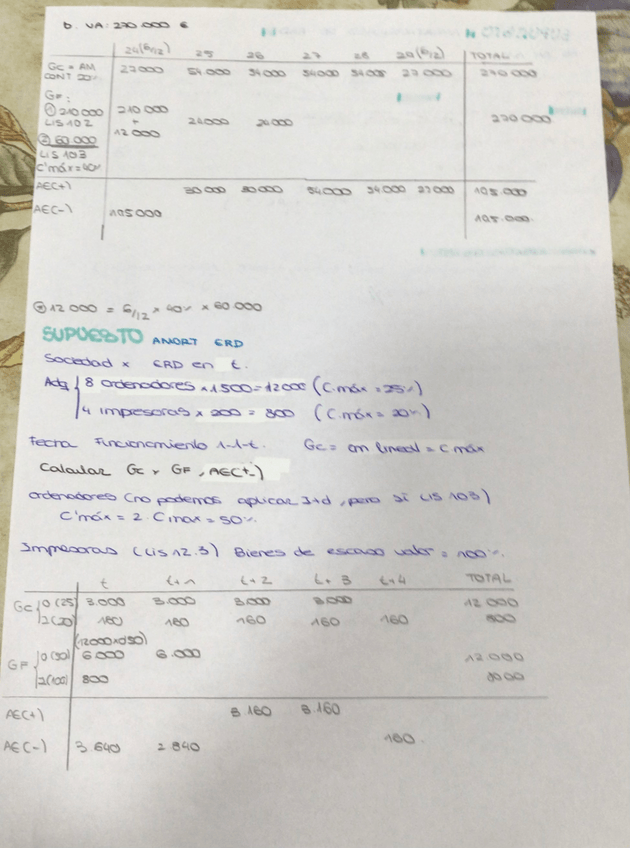 b. VA: 270.000 €
24(6/12) 25 26 27 28 29(6/12) TOTAL
GC = AM 27000 54000 54000 54000 54000 27000 270000
CONT 20%
GF:
① 210000 210000
LIS 102 + 24000 24000 270000
② 60.000 12000
LIS 103
C'máx=40%
AEC+) 30000 30000 54000 54000 27000 195.000
AEC-) 195000 195.000
② 12 000 = 6/12 x 40% x 60.000
SUPUESTO AMORT ERD
Sociedad x ERD en t.
Adq 8 ordenadores x 1500 = 12000 (C.máx = 25%)
4 impresoras x 200 = 800 (C.máx = 20%)
Fecha Funcionamiento 1-1-t. Gc = am lineal = C máx
Calcular Gc, GF, AEC+-)
ordenadores (no podemos aplicar I+d, pero sí LIS 103)
C'máx = 2. Cmax = 50%.
Impresoras (Lis 12.3) Bienes de escaso valor = 100%.
t t+1 t+2 t+3 t+4 TOTAL
GC 0(25) 3.000 3.000 3.000 3.000 12 000
2(20) 160 160 160 160 160 800
(12000x0'50)
GF 0(50) 6.000 6.000 12.000
2(100) 800 8000
AEC+) 3.160 3.160
AEC-) 3.640 2.840 160.